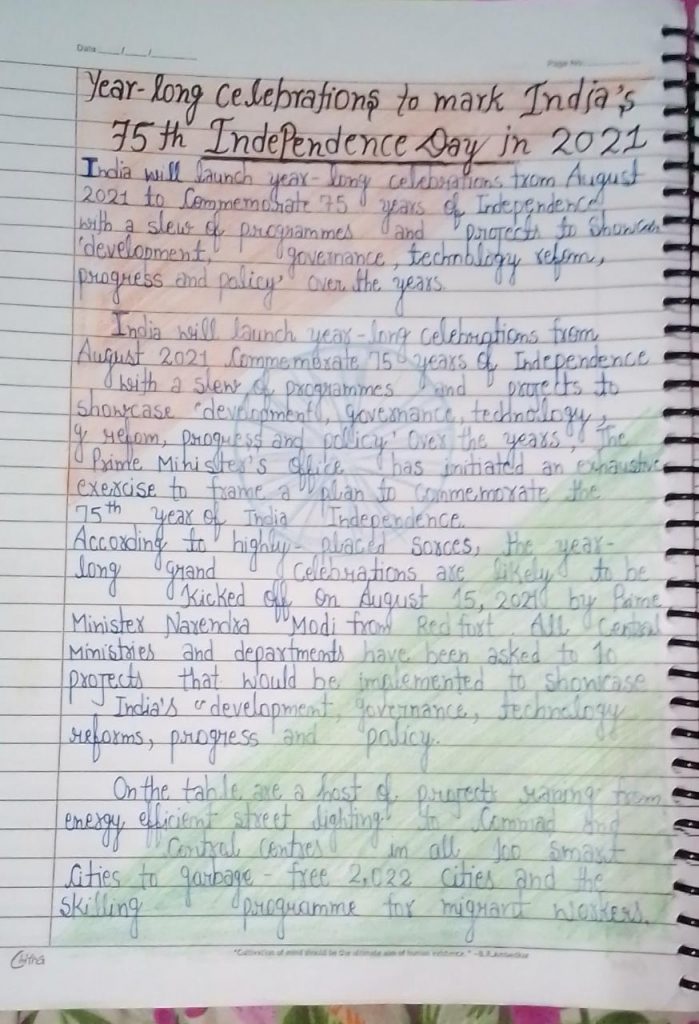 Date ___/___/______
Page No.
Year-long celebrations to mark India's
75th Independence Day in 2021
India will launch year-long celebrations from August
2021 to Commemorate 75 years of Independence
with a slew of programmes and projects to Showcase
'development, governance, technology reform,
progress and policy' over the years.
India will launch year-long celebrations from
August 2021 Commemorate 75 years of Independence
with a slew of programmes and projects to
showcase "development, governance, technology,
y refom, progress and policy' over the years, The
Prime Minister's Office has initiated an exhaustive
exercise to frame a plan to Commemorate the
75th year of India Independence.
According to highly-placed sorces, the year-
long grand celebrations are likely to be
Kicked off on August 15, 2021 by Prime
Minister Narendra Modi from Red fort All Central
Ministries and departments have been asked to 10
projects that would be implemented to showcase
India's "development, governance, technology
reforms, progress and policy.
On the table are a host of projects raning from
energy efficient street lighting to Commad and
Control Centres in all 100 Smart
Cities to garbage-free 2,022 cities and the
skilling programme for migrant workers.
"Cultivation of mind should be the ultimate aim of human existence." -B.R.Ambedkar